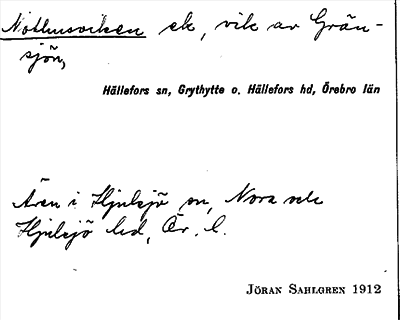 Nothusviken ek, vik av Grän-
sjön,
Hällefors sn, Grythytte o. Hällefors hd, Örebro län
Även i Hjulsjö sn, Nora och
Hjulsjö hd, Ör. l.
JÖRAN SAHLGREN 1912